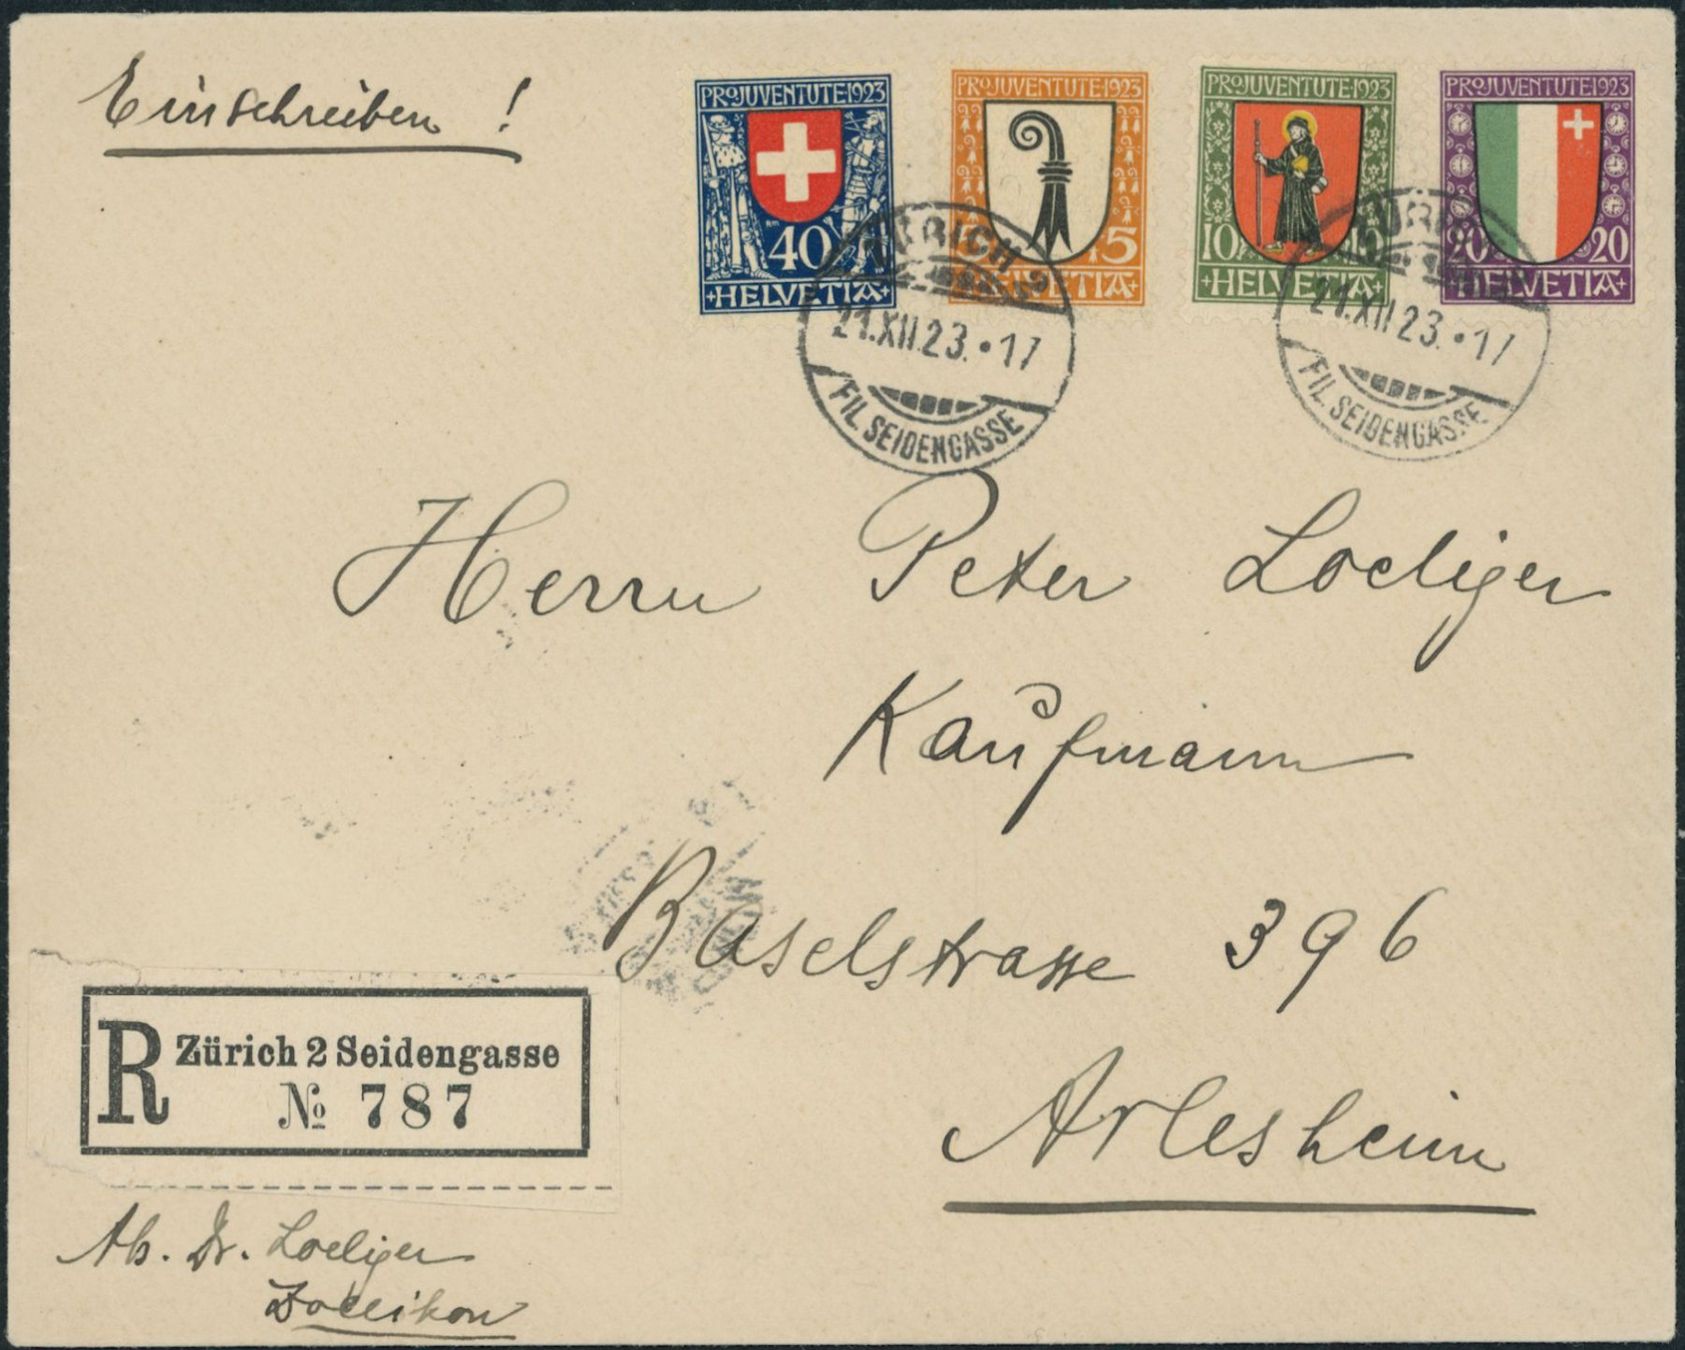 Einschreiben !
PROJUVENTUTE·1923
40
+HELVETIA+
PROJUVENTUTE·1923
5
HELVETIA+
PROJUVENTUTE·1923
10 10
+HELVETIA+
PROJUVENTUTE·1923
20 20
HELVETIA+
ZÜRICH 2
21.XII.23.•17
FIL. SEIDENGASSE
ZÜRICH
21.XII.23.•17
FIL. SEIDENGASSE
Herrn Peter Loeliger
Kaufmann
Baselstrasse 396
Arlesheim
R Zürich 2 Seidengasse
№ 787
Ab. Dr. Loeliger
Zollikon